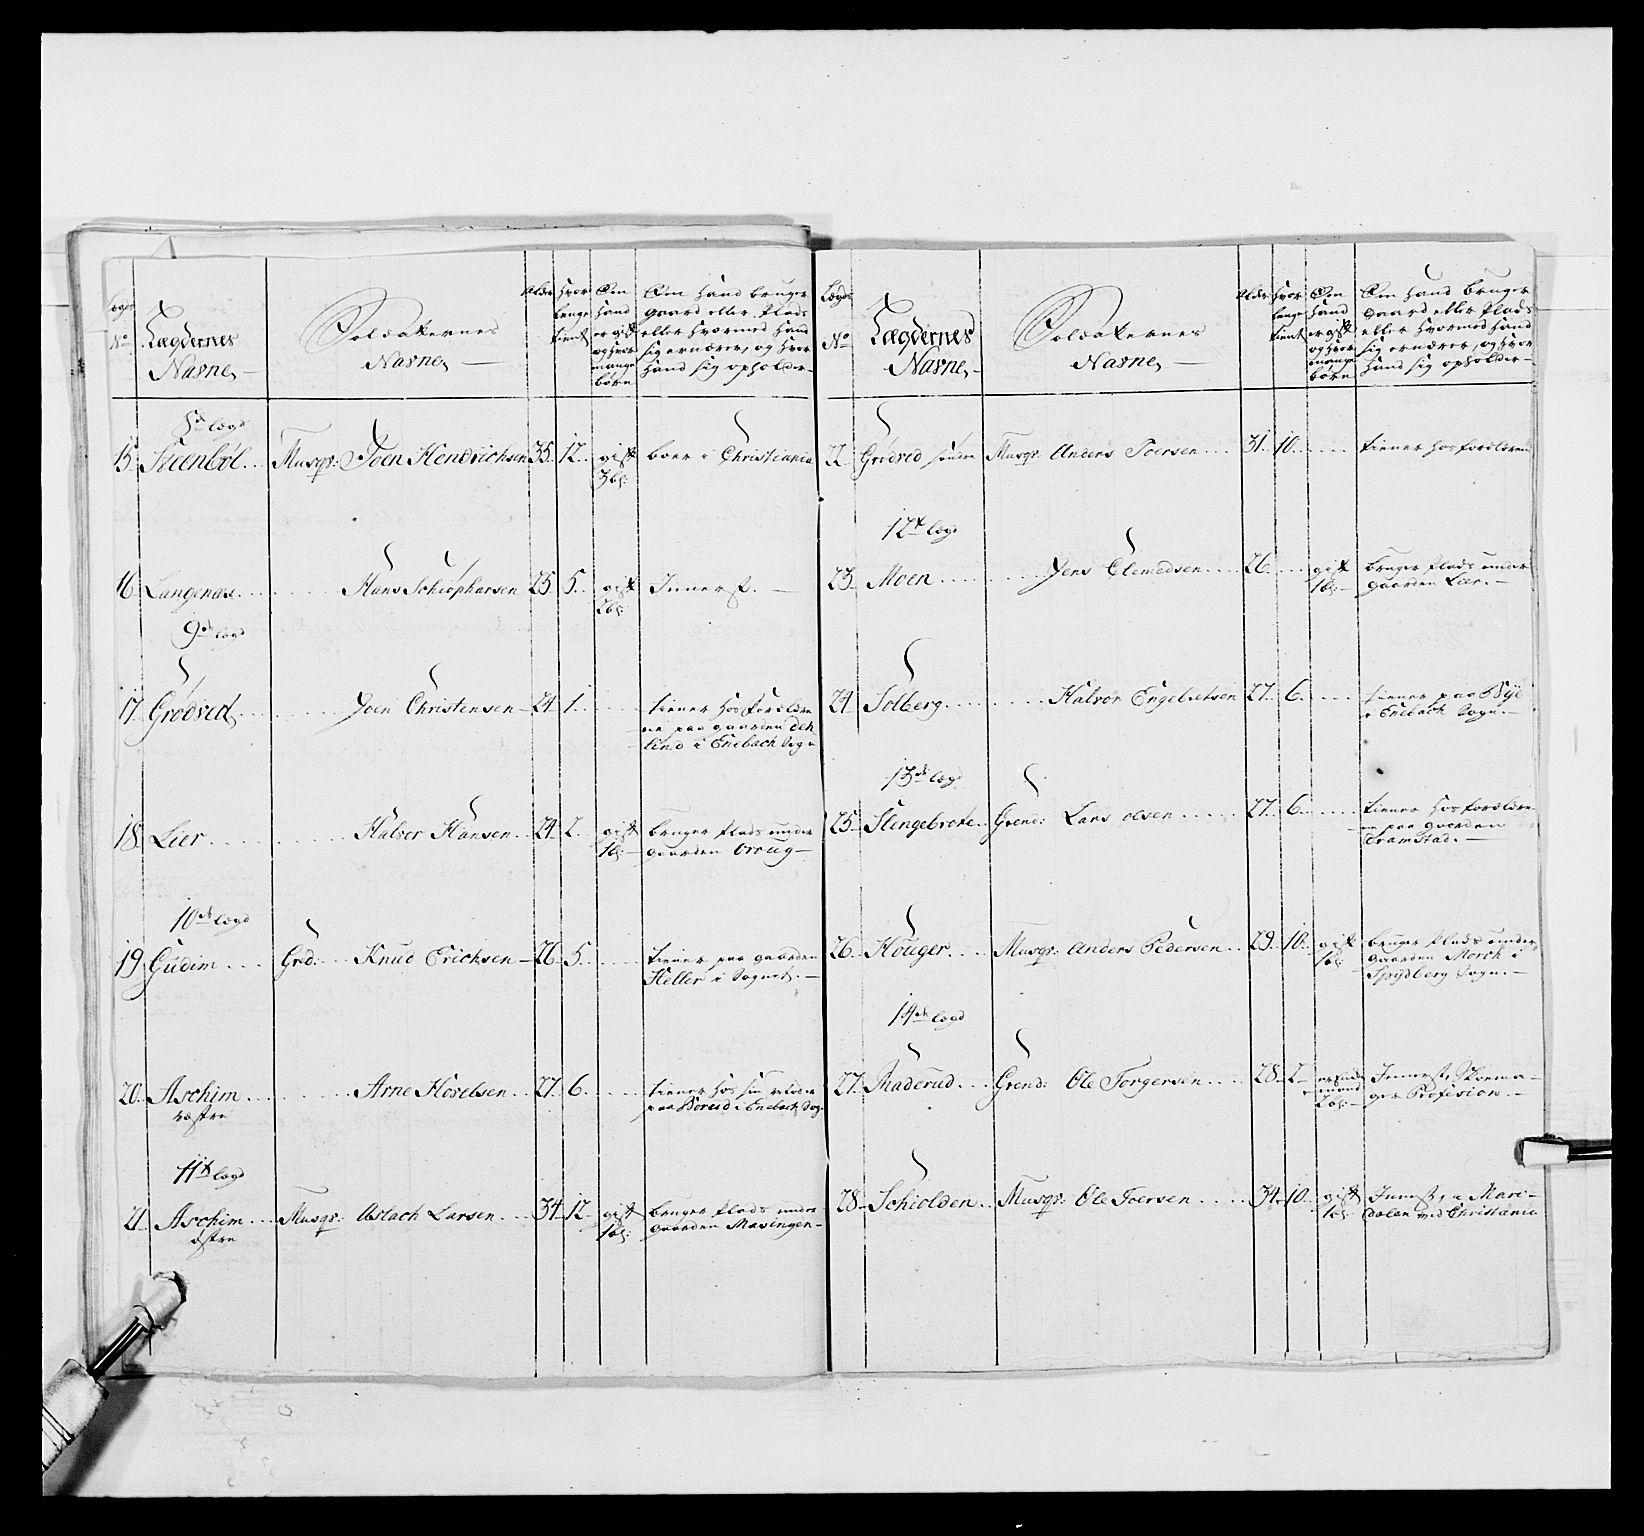 Lægds No
Lægdernes Navne,
Soldaternes Navne,
Alder
Hvor lenge tient
Om hand er gift og hvor mange børn
Om hand bruger gaard eller Plads eller hvormed hand sig ernærer, og hvor hand sig opholder
8de lægd
15 Steenbøl Musqr: Joen Hendrichsen 35 12 gift 3 b: boer i Christiania
16 Langenæs Hans Schiøpharsen 25 5 gift 2 b: Innerst.
9de lægd
17 Grødved Joen Christensen 24 1
tiener hos Forældre
ne paa gaarden
lind i Enebach Sogn
18 Lier Halvor Hansen 24 2 gift 1 b:
bruger Plads under
gaarden Oroug
10de lægd
19 Gudim Grd: Knud Erichsen 26 5
tiener paa gaarden
Heller i Sognet.
20 Aschim væstre Arne Hoselsen 27 6
tiener hos sin
paa i Enebach Sog:
11te lægd
21 Aschim østre Musqr: Aslach Larsen 34 12 gift 1 b:
bruger Plads under
gaarden Masingen
Lægds No
Lægdernes Navne,
Soldaternes Navne,
Alder
Hvor lenge tient
Om hand er gift og hvor mange børn
Om hand bruger gaard eller Plads eller hvormed hand sig ernærer, og hvor hand sig opholder
22 Grødved søndre Musqr: Anders Toersen 31 10 tiener hos forældrene
12te lægd
23 Moen Jens Clemedsen 26 gift 1 b:
bruger Plads under
gaarden Lier.
24 Solberg Halvor Engebretsen 27 6
tiener paa Bye
i Enebach Sogn.
13de lægd
25 Slingebrote Grend: Lars Olsen 27 6
tiener hos forældre
ne paa gaarden
Tramstad.
26 Houger Musqr: Anders Pedersen 29 10 gift 1 b:
bruger Plads under
gaarden Morch i
Spydberg Sogn.
14de lægd
27 Raderud Grend: Ole Torgersen 28 2 enkemand 2 b:
Innerst, Skoema-
ger Profesion.
28 Schiolden Musqr: Ole Toersen 34 10 gift 1 b:
Innerst, i Mari-
dalen ved Christiania